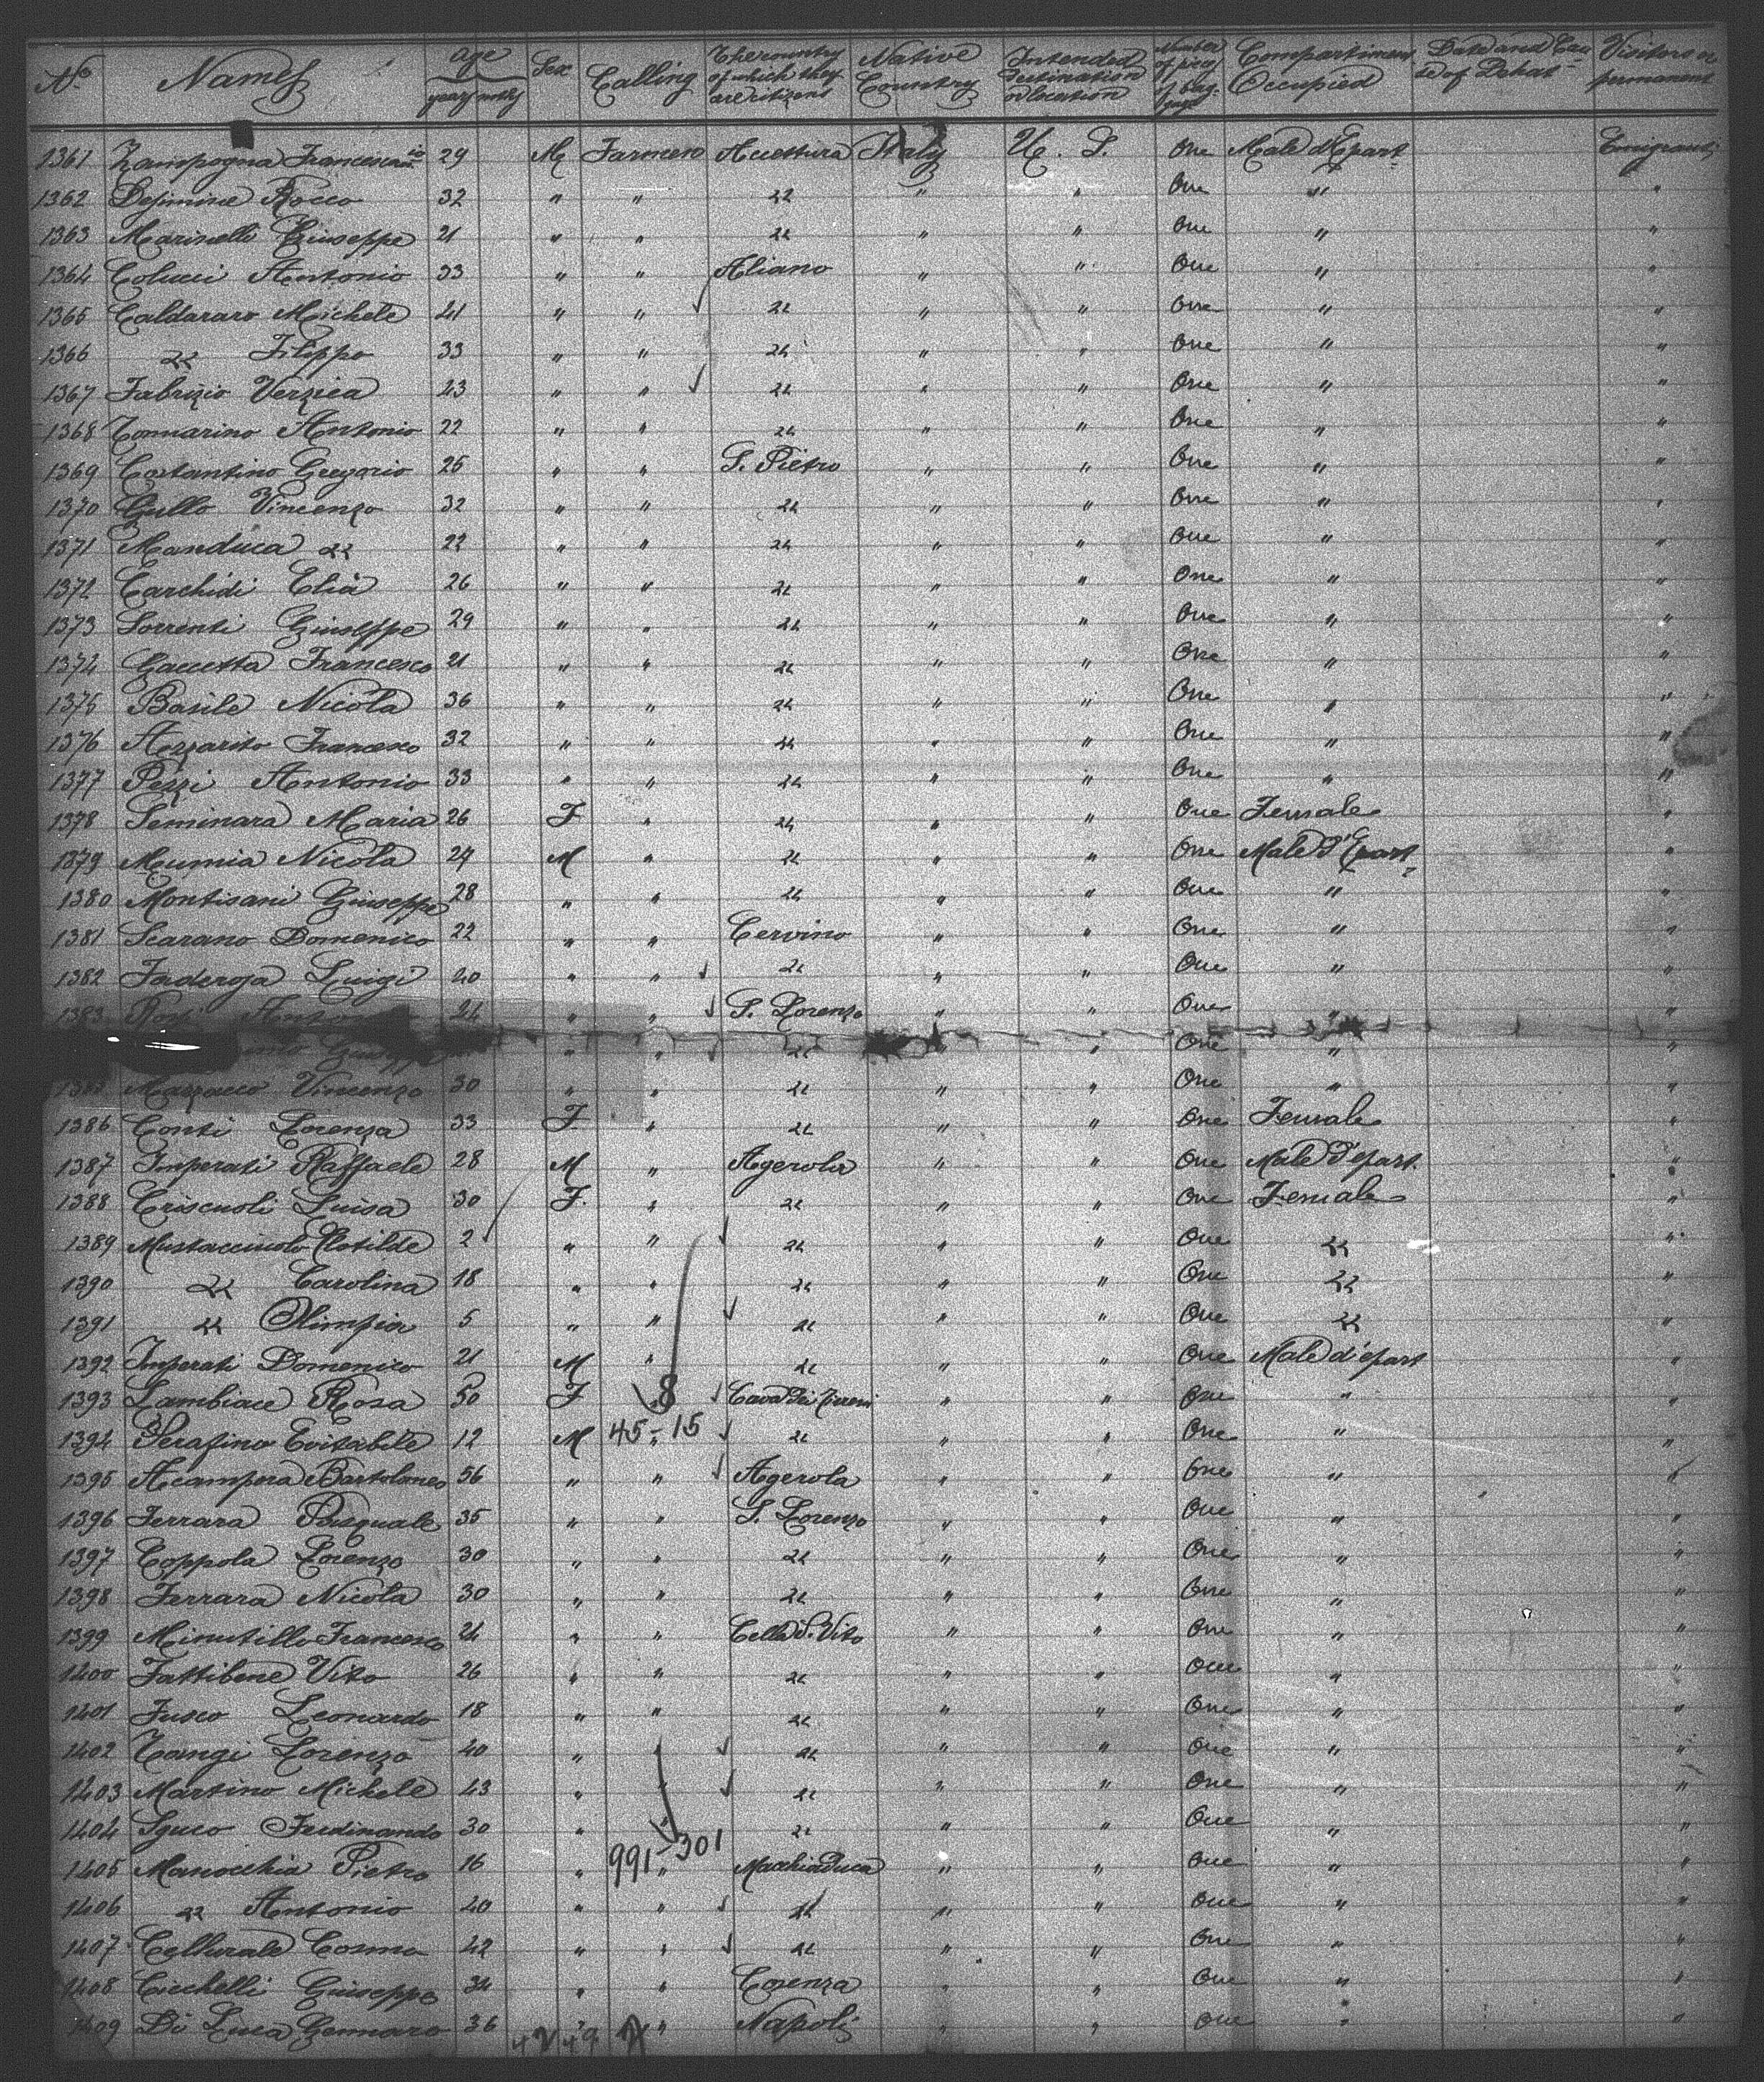 No Names Age years mnths Sex Calling The country of which they are citizens Native Country Intended Destination or location Number of pieces of bag- gage Compartiment Occupied Date and Cau se of Dehat Visitors or permanent
1361 Zampogna Francesco 29 M Farmer Accettura Italy U. S. One Male d'Epart Emigrants
1362 Desimine Rocco 32 " " " " " One " "
1363 Marinelli Giuseppe 21 " " " " " One " "
1364 Colucci Antonio 33 " " Aliano " " One " "
1365 Caldararo Michele 41 " " " " " One " "
1366 " Filippo 33 " " " " " One " "
1367 Fabrizio Verzica 43 " " " " " One " "
1368 Tommarino Antonio 22 " " " " " One " "
1369 Costantino Gregorio 25 " " S. Pietro " " One " "
1370 Gullo Vincenzo 32 " " " " " One " "
1371 Manduca " 22 " " " " " One " "
1372 Carchidi Elia 26 " " " " " One " "
1373 Sorrenti Giuseppe 29 " " " " " One " "
1374 Gaccetta Francesco 21 " " " " " One " "
1375 Basile Nicola 36 " " " " " One " "
1376 Azzarito Francesco 32 " " " " " One " "
1377 Pezzi Antonio 33 " " " " " One " "
1378 Seminara Maria 26 F " " " " One Female "
1379 Mumia Nicola 24 M " " " " One Male d'Epart "
1380 Montisani Giuseppe 28 " " " " " One " "
1381 Scarano Domenico 22 " " Cervino " " One " "
1382 Luigi 40 " " " " " One " "
1383 Rosi Antonio 24 " " S. Lorenzo " " One " "
" " " " " One " "
Mazzacco Vincenzo 30 " " " " " One " "
1386 Conti Lorenza 33 F " " " " One Female "
1387 Imperati Raffaele 28 M " Agerola " " One Male d'epart. "
1388 Criscuoli Luisa 30 F. " " " " One Female "
1389 Mustacciuolo Clotilde 2 " " " " " One " "
1390 " Carolina 18 " " " " " One " "
1391 " Olimpia 5 " " " " " One " "
1392 Imperati Domenico 21 M " " " " One Male d'epart "
1393 Lambiace Rosa 50 F 8 Cava Dei Tirreni " " One " "
1394 Serafino Evitabile 12 M 45-15 " " " " One " "
1395 Acampora Bartolomeo 56 " " Agerola " " One " "
1396 Ferrara Pasquale 35 " " S. Lorenzo " " One " "
1397 Coppola Lorenzo 30 " " " " " One " "
1398 Ferrara Nicola 30 " " " " " One " "
1399 Minutillo Francesco 24 " " Celle S. Vito " " One " "
1400 Fattibene Vito 26 " " " " " One " "
1401 Fusco Leonardo 18 " " " " " One " "
1402 Tangi Lorenzo 40 " " " " " One " "
1403 Martino Michele 43 " " " " " One " "
1404 Ferdinando 30 " " " " " One " "
1405 Manocchia Pietro 16 " 991-301 " Macchiaduca " " One " "
1406 " Antonio 40 " " " " " One " "
1407 Cellurale Cosmo 42 " " " " " One " "
1408 Cicchelli Giuseppe 34 " " Cosenza " " One " "
1409 Di Luca Gennaro 36 " " Napoli " " One " "
42 49 7